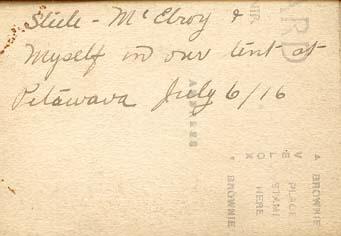 Steele - McElroy &
Myself in our tent at
Petawava July 6/16
CARD
ADDRESS
A BROWNIE
VELOX
PLACE
STAMP
HERE
BROWNIE